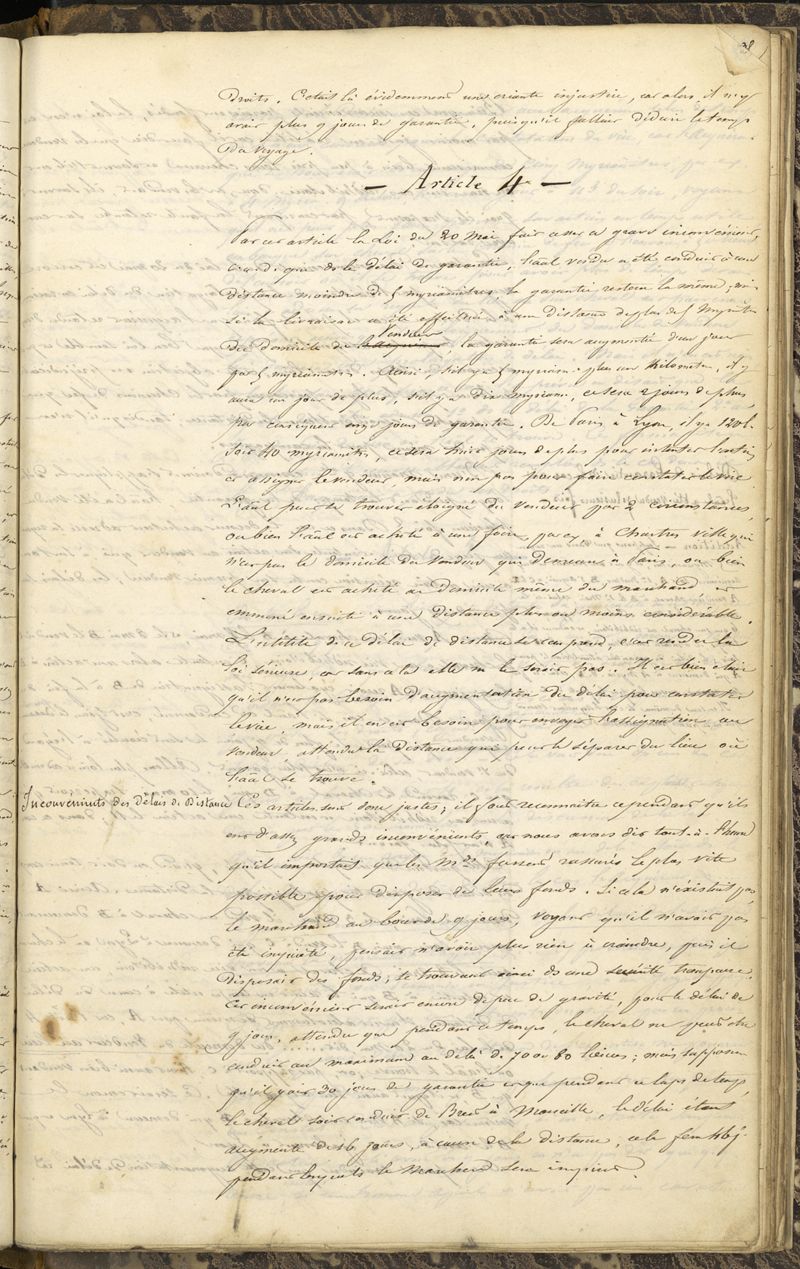 droits. C'était là évidemment une criante injustice, car alors il n'y
avait plus 9 jours de garantie, puisqu'il fallait déduire le temps
du voyage.
— Article 4 —
Par cet article la Loi du 20 Mai fait cesser ce grave inconvénient,
dans le délai de garantie, l'aal vendu a été conduit à une
distance moindre de 5 myriamètres, la garantie restera la même; mais
si la livraison a été effectuée à une distance de plus de 5 Myriam
du domicile du Vendeur, la garantie sera augmentée d'un jour
par 5 myriamètres. Ainsi, s'il y a 5 myriam. plus un Kilomètre, il y
aura un jour de plus, s'il y a dix myriam, ce sera 2 jours de plus,
par conséquent onze jours de garantie. De Paris à Lyon, il y a 120 l.
soit 40 myriamètres, ce sera huit jours de plus pour intenter l'action
et assigner le vendeur, mais non pas pour faire constater le vice
L'aal peut se trouver éloigné du vendeur par 2 circonstances,
ou bien l'aal est acheté à une foire, par ex à Chartres ville qui
n'est pas le domicile du Vendeur qui demeure à Paris, ou bien
le cheval est acheté au domicile même du marchand et
emmené ensuite à une distance plus ou moins considérable.
L'utilité de ce délai de distance se comprend, c'est rendre la
Loi sérieuse, car sans cela elle ne le serait pas. Il est bien clair
qu'il n'est pas besoin d'augmentation du délai pour constater
le vice, mais il en est besoin pour envoyer l'assignation au
vendeur, attendu la distance qui peut le séparer du lieu où
l'aal se trouve.
Inconvénients des Délais de Distance
Ces articles sont donc justes; il faut reconnaître cependant qu'ils
ont d'assez grands inconvénients, car nous avons dit tout-à-l'heure
qu'il importait que les Mds fussent rassurés le plus vite
possible pour disposer de leurs fonds. Si cela n'existait pas,
le marchand au bout de 9 jours, voyant qu'il n'avait pas
été inquiété, pensait n'avoir plus rien à craindre, puis il
disposait des fonds, se trouvant ainsi dans une sécurité trompeuse.
Cet inconvénient serait encore de peu de gravité, pour le délai de
9 jours, attendu que pendant ce temps, le cheval ne peut être
conduit au maximum au delà de 70 ou 80 lieues; mais supposons
qu'il y ait 30 jours de garantie et que pendant ce laps de temps,
le cheval soit conduit de Brest à Marseille, le délai étant
augmenté de 16 jours, à cause de la distance, cela fera 46 j.
pendant lesquels le Marchand sera inquiet.